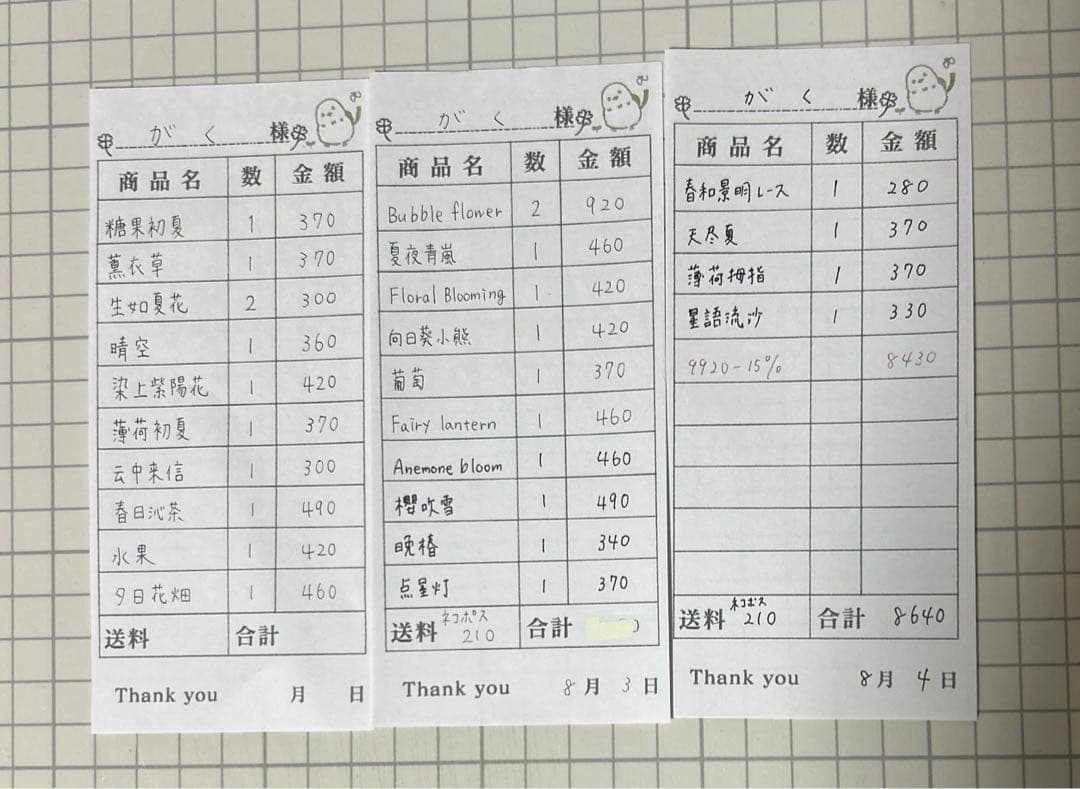 がく 様
商品名 数 金額
糖果初夏 1 370
薰衣草 1 370
生如夏花 2 300
晴空 1 360
染上紫陽花 1 420
薄荷初夏 1 370
云中来信 1 300
春日沁茶 1 490
水果 1 420
夕日花畑 1 460
送料 合計
Thank you 月 日
がく 様
商品名 数 金額
Bubble flower 2 920
夏夜青嵐 1 460
Floral Blooming 1 420
向日葵小熊 1 420
葡萄 1 370
Fairy lantern 1 460
Anemone bloom 1 460
櫻吹雪 1 490
晚椿 1 340
点星灯 1 370
送料 ネコポス 210 合計
Thank you 8月 3日
がく 様
商品名 数 金額
春和景明レース 1 280
天尽夏 1 370
薄荷拇指 1 370
星語流沙 1 330
9920-15% 8430
送料 ネコポス 210 合計 8640
Thank you 8月 4日